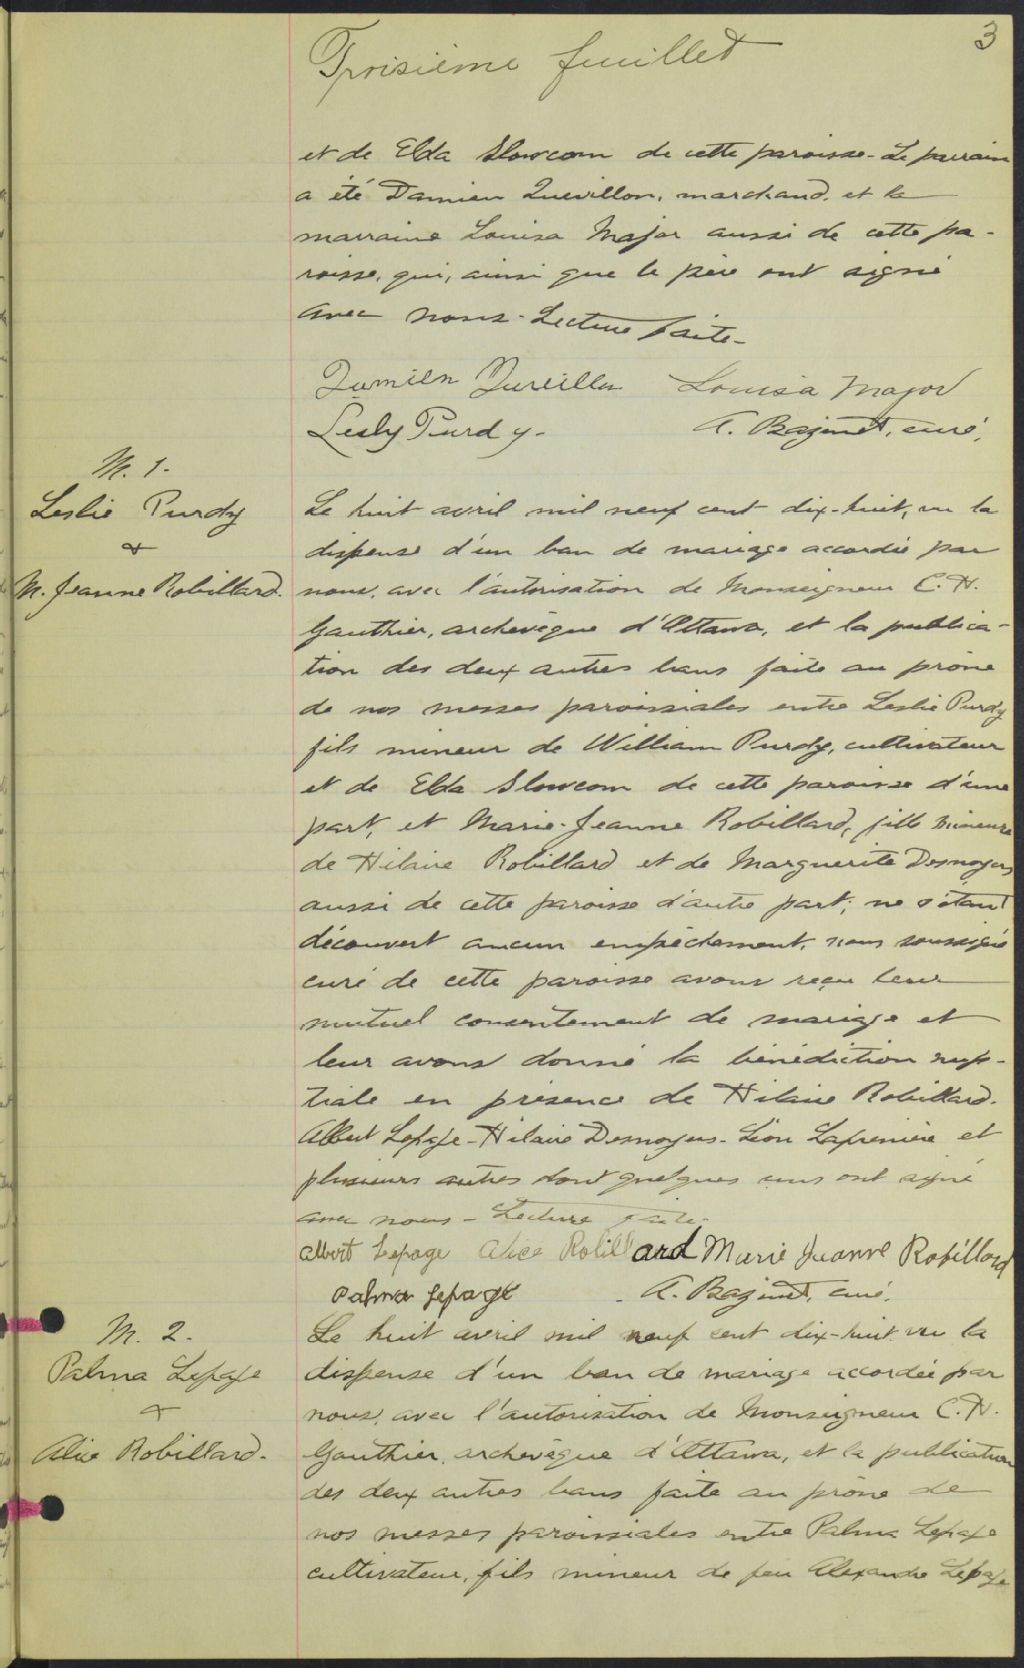 3
Troisième feuillet
et de Elda Slowcom de cette paroisse - Le parrain
a été Damien Quevillon, marchand, et la
marraine Louisa Major aussi de cette pa-
roisse, qui, ainsi que le père ont signé
avec nous - Lecture faite -
Damien Louisa Major
Lesly Purdy - A. Bazinet, curé,
M. 1.
Leslie Purdy
&
M. Jeanne Robillard.
Le huit avril mil neuf cent dix-huit, vu la
dispense d'un ban de mariage accordée par
nous, avec l'autorisation de Monseigneur C. H.
Gauthier, archevêque d'Ottawa, et la publica-
tion des deux autres bans faite au prône
de nos messes paroissiales entre Leslie Purdy
fils mineur de William Purdy, cultivateur
et de Elda Slowcom de cette paroisse d'une
part, et Marie-Jeanne Robillard, fille mineure
de Hilaire Robillard et de Marguerite Desnoyers
aussi de cette paroisse d'autre part; ne s'étant
découvert aucun empêchement, nous soussigné
curé de cette paroisse avons reçu leur
mutuel consentement de mariage et
leur avons donné la bénédiction nup-
tiale en présence de Hilaire Robillard.
Albert Lepage - Hilaire Desnoyers - Léon Lapremière et
plusieurs autres dont quelques uns ont signé
avec nous - Lecture faite.
Albert Lepage Alice Robillard Marie Jeanne Robillard
Palma Lepage A. Bazinet, curé.
M. 2.
Palma Lepage
&
Alice Robillard.
Le huit avril mil neuf cent dix-huit vu la
dispense d'un ban de mariage accordée par
nous, avec l'autorisation de Monseigneur C. H.
Gauthier, archevêque d'Ottawa, et la publication
des deux autres bans faite au prône de
nos messes paroissiales entre Palma Lepage
cultivateur, fils mineur de feu Alexandre Lepage